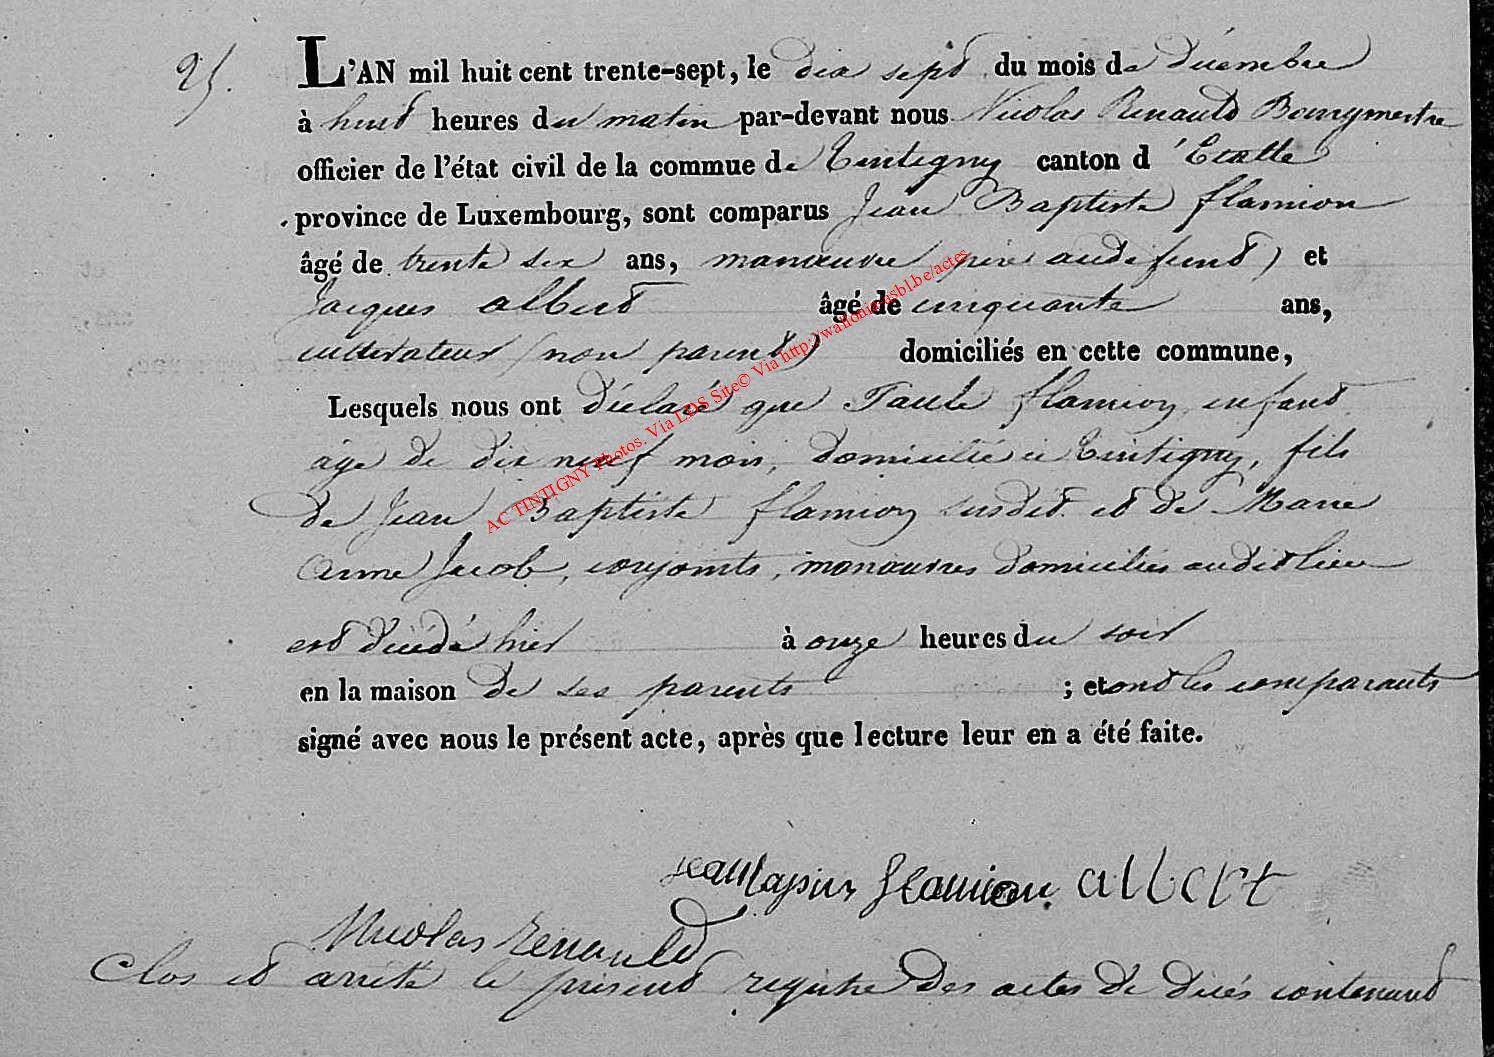 25.
L'AN mil huit cent trente-sept, le dix sept du mois de décembre
à huit heures du matin par-devant nous Nicolas Renauld Bourgmestre
officier de l'état civil de la commue de Tintigny canton d'Etalle
province de Luxembourg, sont comparus Jean Baptiste flamion
âgé de trente six ans, manœuvre père au défunt) et
Jacques albert âgé de cinquante ans,
cultivateur (non parent) domiciliés en cette commune,
Lesquels nous ont déclaré que flamion enfant
âgé de dix neuf mois, domicilié à Tintigny, fils
de Jean Baptiste flamion susdit et de Marie
anne Jacob, conjoints, manœuvres domiciliés audit lieu
est décédé hier à onze heures du soir
en la maison de ses parents ; et ont les comparants
signé avec nous le présent acte, après que lecture leur en a été faite.
flamion albert
Nicolas Renauld
Clos et arrêté le présent registre des actes de décès contenant
AC TINTIGNY Photos. Via LDS Site© Via http://wallonia-asbl.be/actes